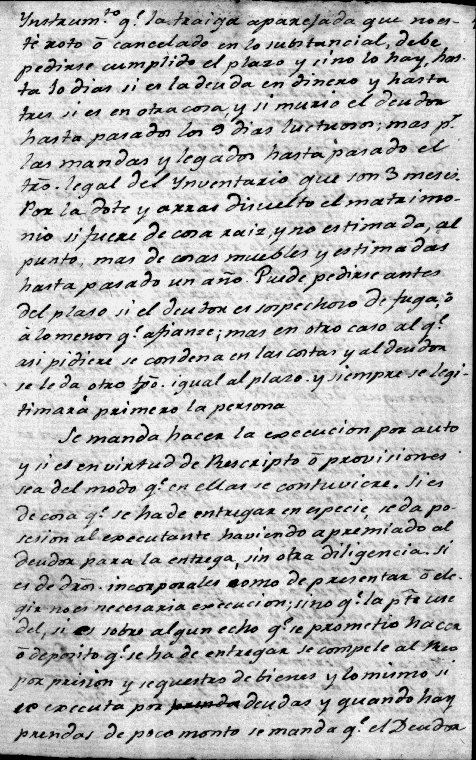 Ynstrum.to q.e la traiga aparejada que no es-
té roto ò cancelado en lo substancial, debe
pedirse cumplido el plazo y sino lo hay, has-
ta 10 dias si es la deuda en dinero y hasta
tres si es en otra cosa, y si murio el deudor
hasta pasados los 9 dias luctuosos; mas p.r
las mandas y legados hasta pasado el
tro. legal del Ynventario que son 3 meses.
Por la dote y arras disuelto el matrimo-
nio si fuere de cosa raiz, y no estimada, al
punto, mas de cosas muebles y estimadas
hasta pasado un año. Puede pedirse antes
del plaso si el deudor es sospechoso de fuga, ò
à lo menos q.e afianze; mas en otro caso al q.e
asi pidiere se condena en las costas y al deudor
se le da otro tpo. igual al plazo. y siempre se legi-
timará primero la persona
Se manda hacer la execucion por auto
y si es en virtud de Rescripto ò provisiones
sea del modo q.e en ellas se contuviere. Si es
de cosa q.e se ha de entregar en especie, se da po-
sesion al executante, haviendo apremiado al
deudor para la entrega, sin otra diligencia. Si
es de dros. incorporales como de presentar ò ele-
gir no es necesaria execucion; sino q.e la p.te use
del, si es sobre algun echo q.e se prometio hacer
ò deposito q.e se ha de entregar se compele al Reo
por prision y sequestro de bienes y lo mismo si
se executa por prenda deudas y quando hay
prendas de poco monto se manda q.e el Deudor